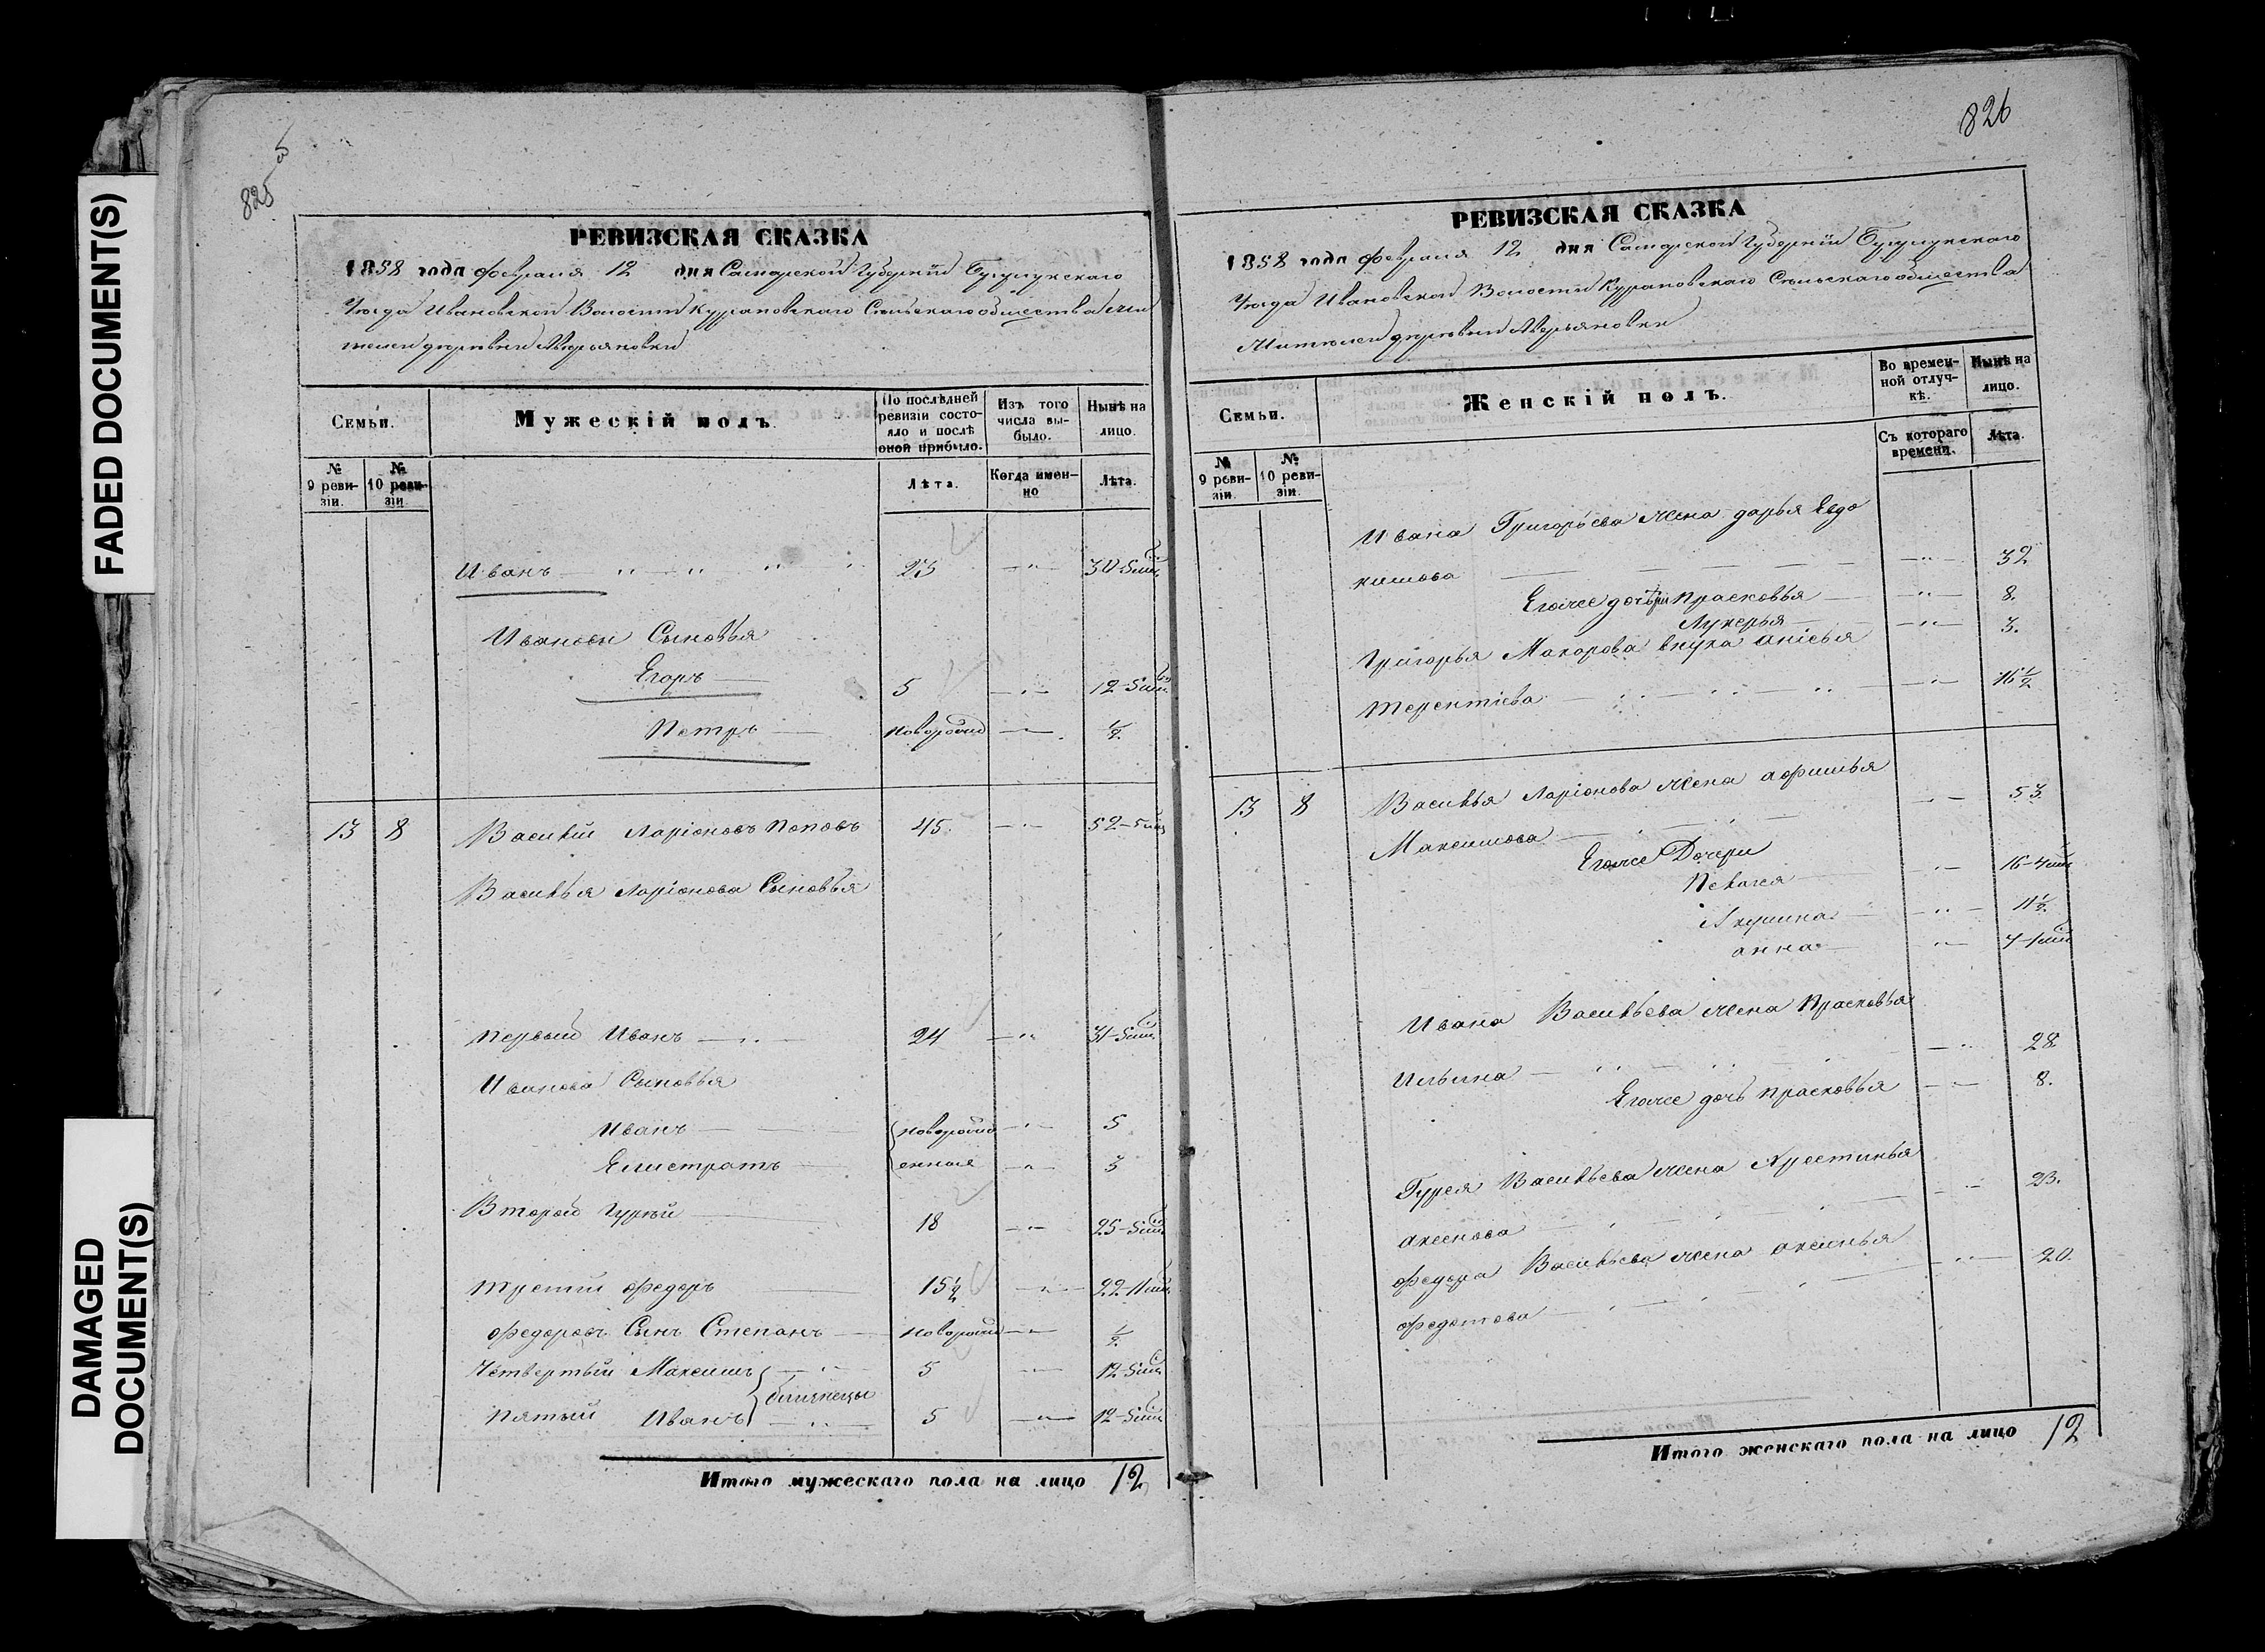 FADED DOCUMENT(S)
DAMAGED
DOCUMENT(S)
825
РЕВИЗСКАЯ СКАЗКА
1858 года февраля 12 дня Самарской Губернии Бугурусланскаго
Уезда Ивановской Волости Курановскаго Сельскаго общества
деревни Аверьяновки
Семьи.
Мужескій полъ.
По послѣдней ревизіи состояло и послѣ оной прибыло.
Изъ того числа выбыло.
Нынѣ на лицо.
№ 9 ревизіи.
№ 10 ревизіи.
Лѣта.
Когда именно
Лѣта.
Иванъ — " — " " " 23 — " — 30-5 мѣц
Ивановы Сыновья
Егоръ — 5 — " — 12-5 мѣц
Петръ — новорожд — " — 1/2
13 8 Василій Ларіоновъ Поповъ 45. — " — 52-5 мѣц
Василья Ларіонова Сыновья
Первый Иванъ — " — 24 — " 31-5 мѣц
Иванова Сыновья
Иванъ — новорожд — " — 5
Елистратъ — енныя — " — 3
Второй Гурѣй — 18 — " — 25-5 мѣц
Третій Федоръ — 15 1/2 — " — 22-11 мѣц
Федоровъ Сынъ Степанъ — новорожд — " — 1/2
Четвертый Максимъ — " — 5 — " — 12-5 мѣц
близнецы
Пятый Иванъ — " — 5 — " — 12-5 мѣц
Итого мужескаго пола на лицо 12
826
РЕВИЗСКАЯ СКАЗКА
1858 года февраля 12 дня Самарской Губерніи
Уезда Ивановской Волости Курановскаго Сельскаго общества
Жителей деревни Аверьяновки
Семьи.
Женскій полъ.
Во временной отлучкѣ.
Нынѣ на лицо.
№ 9 ревизіи.
№ 10 ревизіи.
Съ котораго времени.
Лѣта.
Ивана Григорьева жена дарья Евдо
кимова — " — 32
Егожее дочьри Прасковья — " — 8.
Лукерья — " — 3.
Григорья Макарова внука анисья
терентіева — " — 16 1/2
13 8 Василья Ларіонова жена афимья
Максимова — " — 53
Егожее Дочери
Пелагея — " — 16-4 мѣц
Акулина — " — 11 1/2
анна — " — 7-1 мѣц
Ивана Васильева жена Прасковья
Ильина — " — 28
Егожее дочь прасковья — " — 8.
Гурея Васильева жена Крестинья
аксенова — " — 23.
Федора Васильева жена аксинья
федотова — " — 20.
Итого женскаго пола на лицо 12